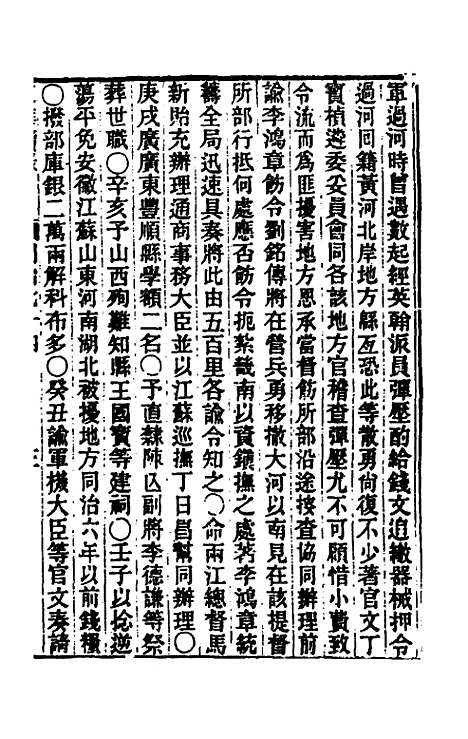 軍過河時曾遇數起經英翰派員彈壓酌給錢文追繳器械押令
過河回籍黃河北岸地方緜亙恐此等散勇尚復不少著官文丁
寶楨遴委妥員會同各該地方官稽查彈壓尤不可顧惜小費致
令流而為匪擾害地方恩承當督飭所部沿途按查協同辦理前
諭李鴻章飭令劉銘傳將在營兵勇移撤大河以南見在該提督
所部行抵何處應否飭令扼紮畿南以資鎮撫之處著李鴻章統
籌全局迅速具奏將此由五百里各諭令知之〇命兩江總督馬
新貽充辦理通商事務大臣並以江蘇巡撫丁日昌幫同辦理〇
庚戌廣廣東豐順縣學額二名〇予直隸陳亾副將李德謙等祭
葬世職〇辛亥予山西殉難知縣王國寶等建祠〇壬子以捻逆
蕩平免安徽江蘇山東河南湖北被擾地方同治六年以前錢糧
〇撥部庫銀二萬兩解科布多〇癸丑諭軍機大臣等官文奏請